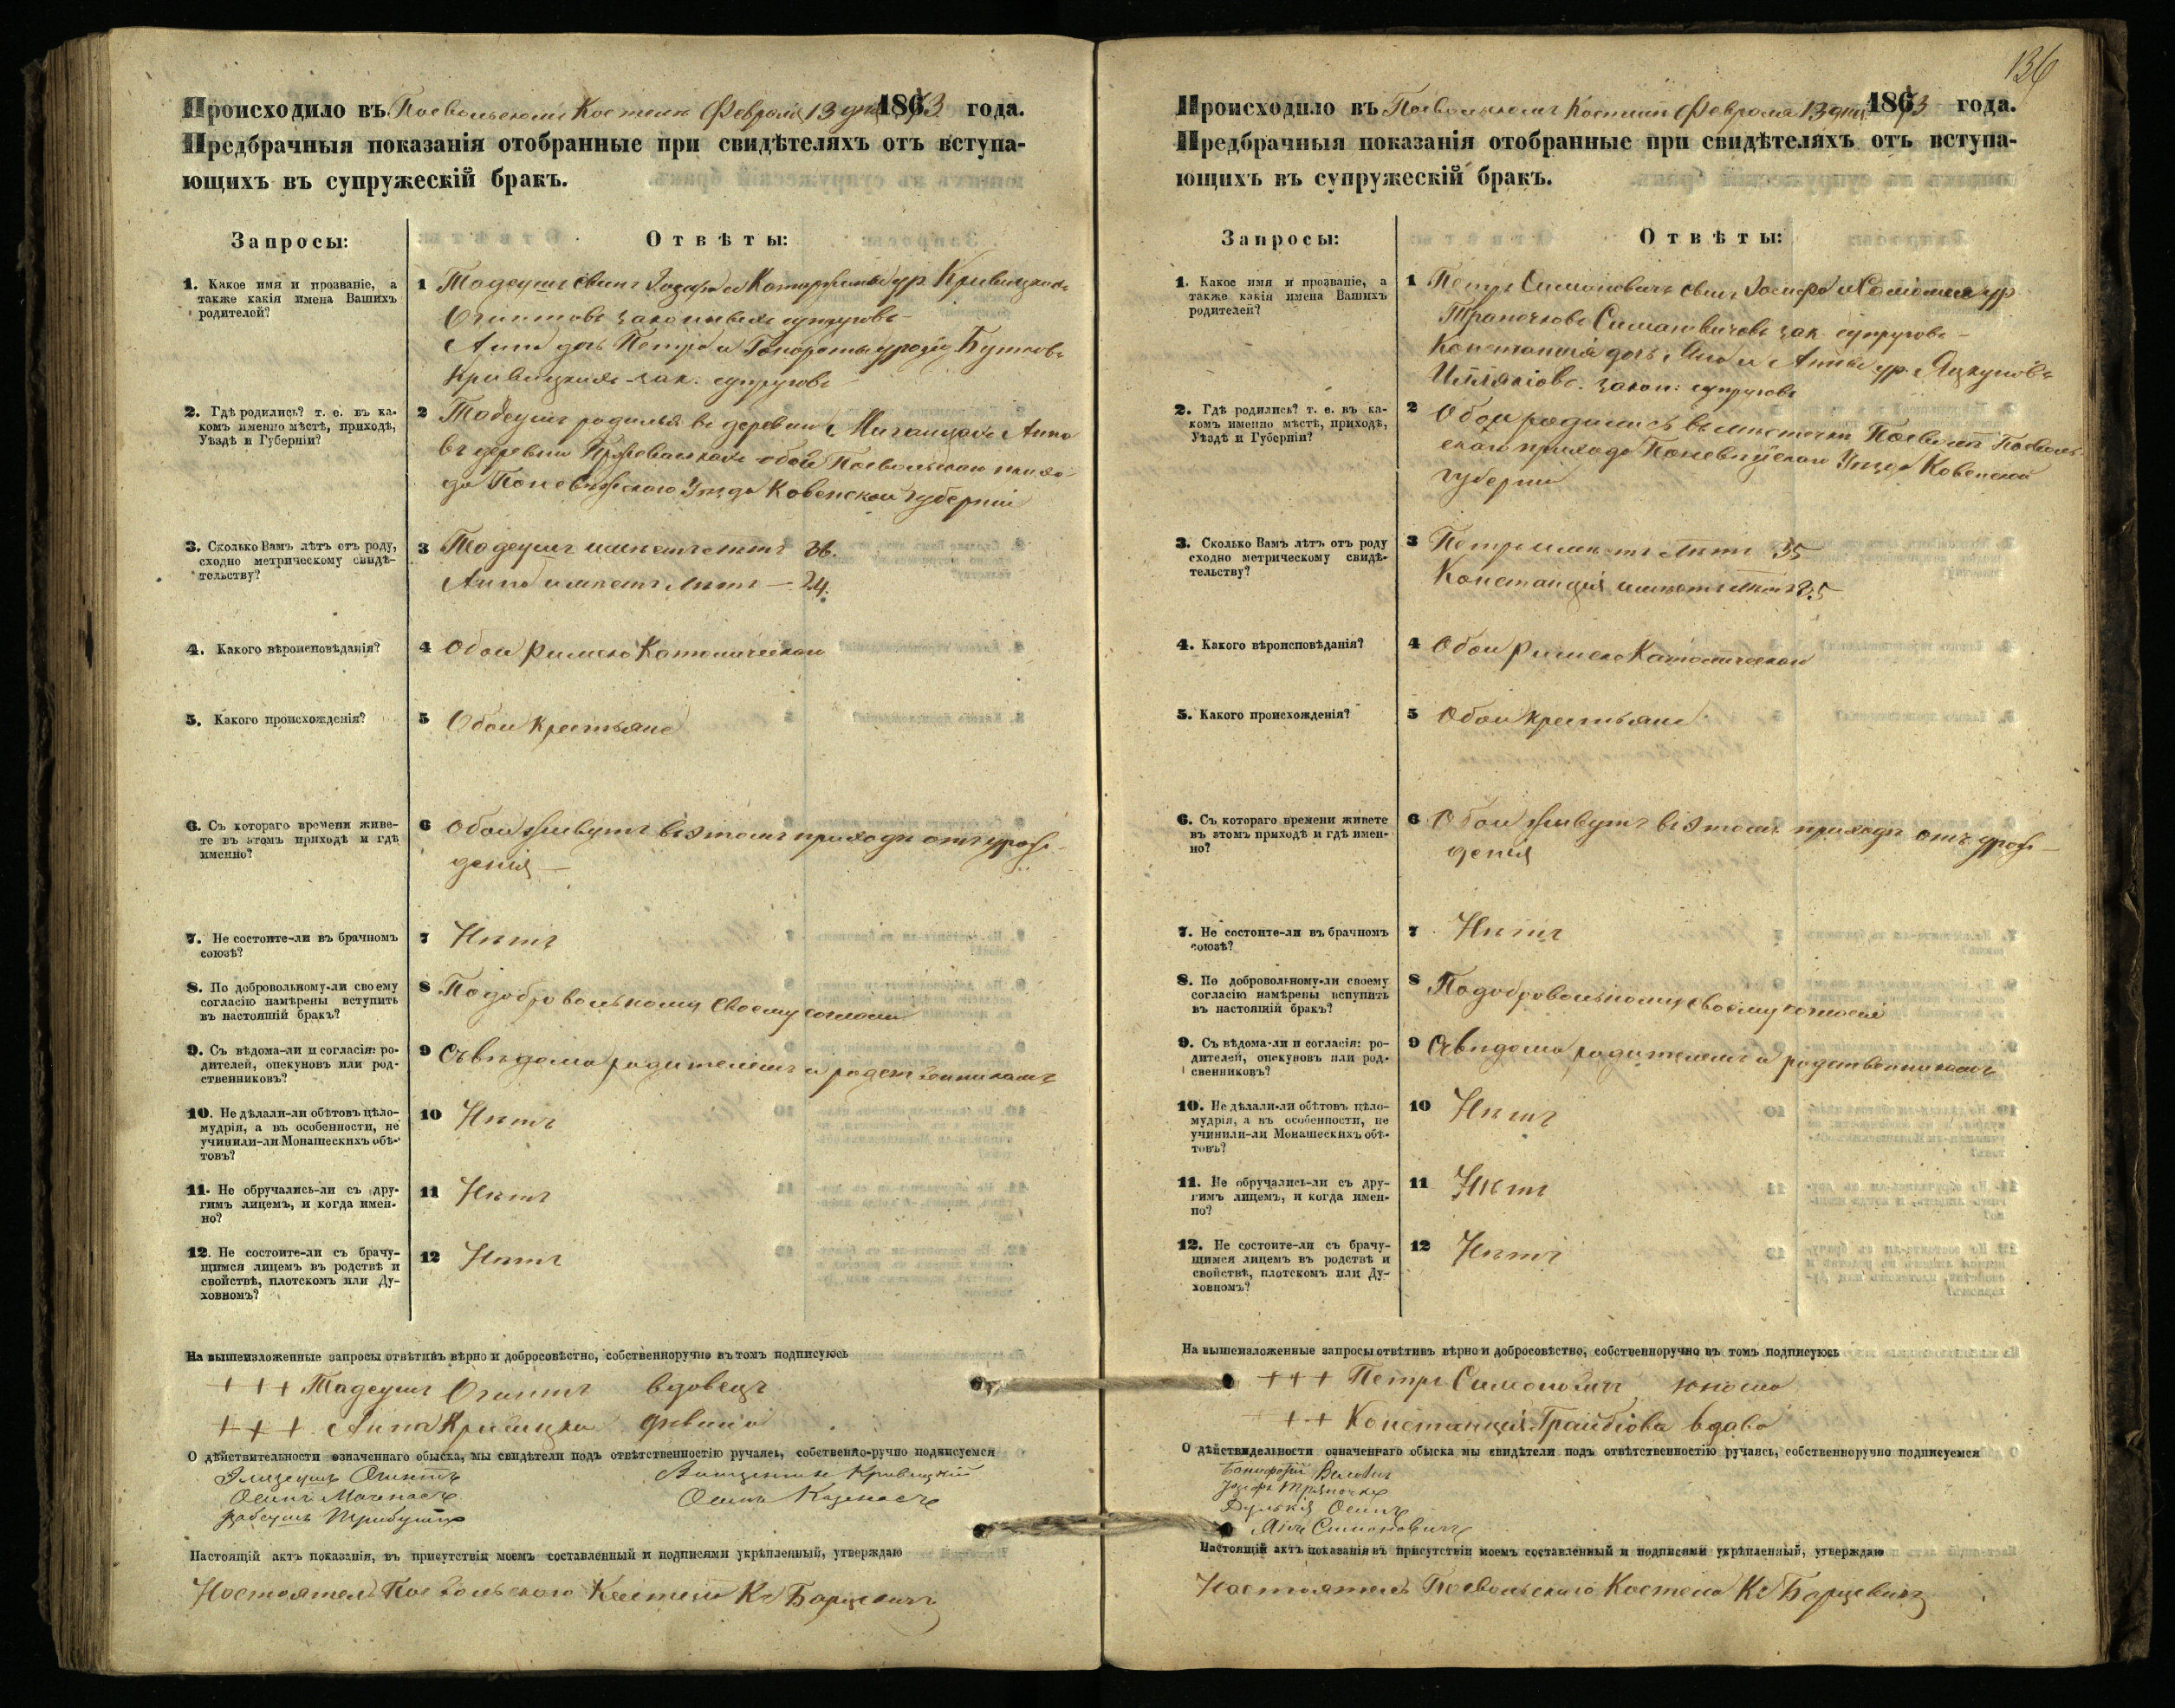 Происходило въ Поевольскомъ Костелѣ Февраля 13 дня 1863 года.
Предбрачныя показанія отобранные при свидѣтеляхъ отъ вступа-
ющихъ въ супружескій бракъ.
Запросы:
Отвѣты:
1. Какое имя и прозваніе, а
также какія имена Вашихъ
родителей?
1 Тадеушъ сынъ Іозафа и Катаржины ур Кривицкихъ
Огинтовъ законныхъ супруговъ
Анна дочь Петра и Гонораты урож Бутковъ
Кривицкихъ зак. супруговъ
2. Гдѣ родились? т. е. въ ка-
комъ именно мѣстѣ, приходѣ,
Уѣздѣ и Губерніи?
2 Тадеушъ родился въ деревни Анна
въ деревни обои Поевольскаго прихо-
да Поневѣжскаго Уѣзда Ковенской Губерніи
3. Сколько Вамъ лѣтъ отъ роду,
сходно метрическому свидѣ-
тельству?
3 Тадеушъ имѣетъ лѣтъ 36.
Анна имѣетъ лѣтъ — 24.
4. Какого вѣроисповѣданія?
4 Обои Римско Католическаго
5. Какого происхожденія?
5 Обои Крестьяне
6. Съ котораго времени живе-
те въ этомъ приходѣ и гдѣ
именно?
6 Обои живутъ въ этомъ приходѣ отъ урож-
денія —
7. Не состоите-ли въ брачномъ
союзѣ?
7 Нѣтъ
8. По добровольному-ли своему
согласію намѣрены вступить
въ настоящій бракъ?
8 По добровольному своему согласію
9. Съ вѣдома-ли и согласія: ро-
дителей, опекуновъ или род-
ственниковъ?
9 Съ вѣдома родителемъ и родственникамъ
10. Не дѣлали-ли обѣтовъ цѣло-
мудрія, а въ особенности, не
учинили-ли Монашескихъ обѣ-
товъ?
10 Нѣтъ
11. Не обручались-ли съ дру-
гимъ лицемъ, и когда имен-
но?
11 Нѣтъ
12. Не состоите-ли съ брачу-
щимся лицемъ въ родствѣ и
свойствѣ, плотскомъ или Ду-
ховномъ?
12 Нѣтъ
На вышеизложенные запросы отвѣтивъ вѣрно и добросовѣстно, собственноручно въ томъ подписуюсь
+ + + Тадеушъ Огинтъ вдовецъ
+ + + Анна Кривицка дѣвица
О дѣйствительности означеннаго обыска, мы свидѣтели подъ отвѣтственностію ручаясь, собственно-ручно подписуемся
Элизеушъ Огинтъ
Винцентые Кривицкій
Осипъ
Осипъ
Тадеушъ
Настоящій актъ показанія, въ присутствіи моемъ составленный и подписями укрѣпленный, утверждаю
Настоятель Поевольскаго Костела Кс Барцевичъ
136
Происходило въ Поевольскомъ Костелѣ Февраля 13 дня 1863 года.
Предбрачныя показанія отобранные при свидѣтеляхъ отъ вступа-
ющихъ въ супружескій бракъ.
Запросы:
Отвѣты:
1. Какое имя и прозваніе, а
также какія имена Вашихъ
родителей?
1 Петръ Симоновичъ сынъ Іосифа и Саломеи ур
Трапочковъ Симоновичовъ зак супруговъ
Констанція дочь Яна и Анны ур. Яцкуновъ
закон: супруговъ
2. Гдѣ родились? т. е. въ ка-
комъ именно мѣстѣ, приходѣ,
Уѣздѣ и Губерніи?
2 Обои родились въ мѣстечкѣ Поеволь Поеволь-
скаго прихода Поневѣжскаго Уѣзда Ковенской
Губерніи
3. Сколько Вамъ лѣтъ отъ роду
сходно метрическому свидѣ-
тельству?
3 Петръ имѣетъ лѣтъ 35
Констанція имѣетъ лѣтъ 35
4. Какого вѣроисповѣданія?
4 Обои Римско Католическаго
5. Какого происхожденія?
5 Обои крестьяне
6. Съ котораго времени живете
въ этомъ приходѣ и гдѣ имен-
но?
6 Обои живутъ въ этомъ приходѣ отъ урож-
денія
7. Не состоите-ли въ брачномъ
союзѣ?
7 Нѣтъ
8. По добровольному-ли своему
согласію намѣрены вступить
въ настоящій бракъ?
8 По добровольному своему согласію
9. Съ вѣдома-ли и согласія: ро-
дителей, опекуновъ или род-
свенниковъ?
9 Съ вѣдома родителемъ и родственникамъ
10. Не дѣлали-ли обѣтовъ цѣло-
мудрія, а въ особенности, не
учинили-ли Монашескихъ обѣ-
товъ?
10 Нѣтъ
11. Не обручались-ли съ дру-
гимъ лицемъ, и когда имен-
но?
11 Нѣтъ
12. Не состоите-ли съ брачу-
щимся лицемъ въ родствѣ и
свойствѣ, плотскомъ или Ду-
ховномъ?
12 Нѣтъ
На вышеизложенные запросы отвѣтивъ вѣрно и добросовѣство, собственноручно въ томъ подписуюсь
+ + + Петръ Симоновичъ юноша
+ + Констанція Грайбіова вдова
О дѣйствидельности означеннаго обыска мы свидѣтели подъ отвѣтственностію ручаясь, собственноручно подписуемся
Бонифацій
Іозефъ Трапочка
Осипъ
Янъ Симоновичъ
Настоящій актъ показанія въ присутствіи моемъ составленный и подписями укрѣпленный, утверждаю
Настоятель Поевольскаго Костела Кс Барцевичъ